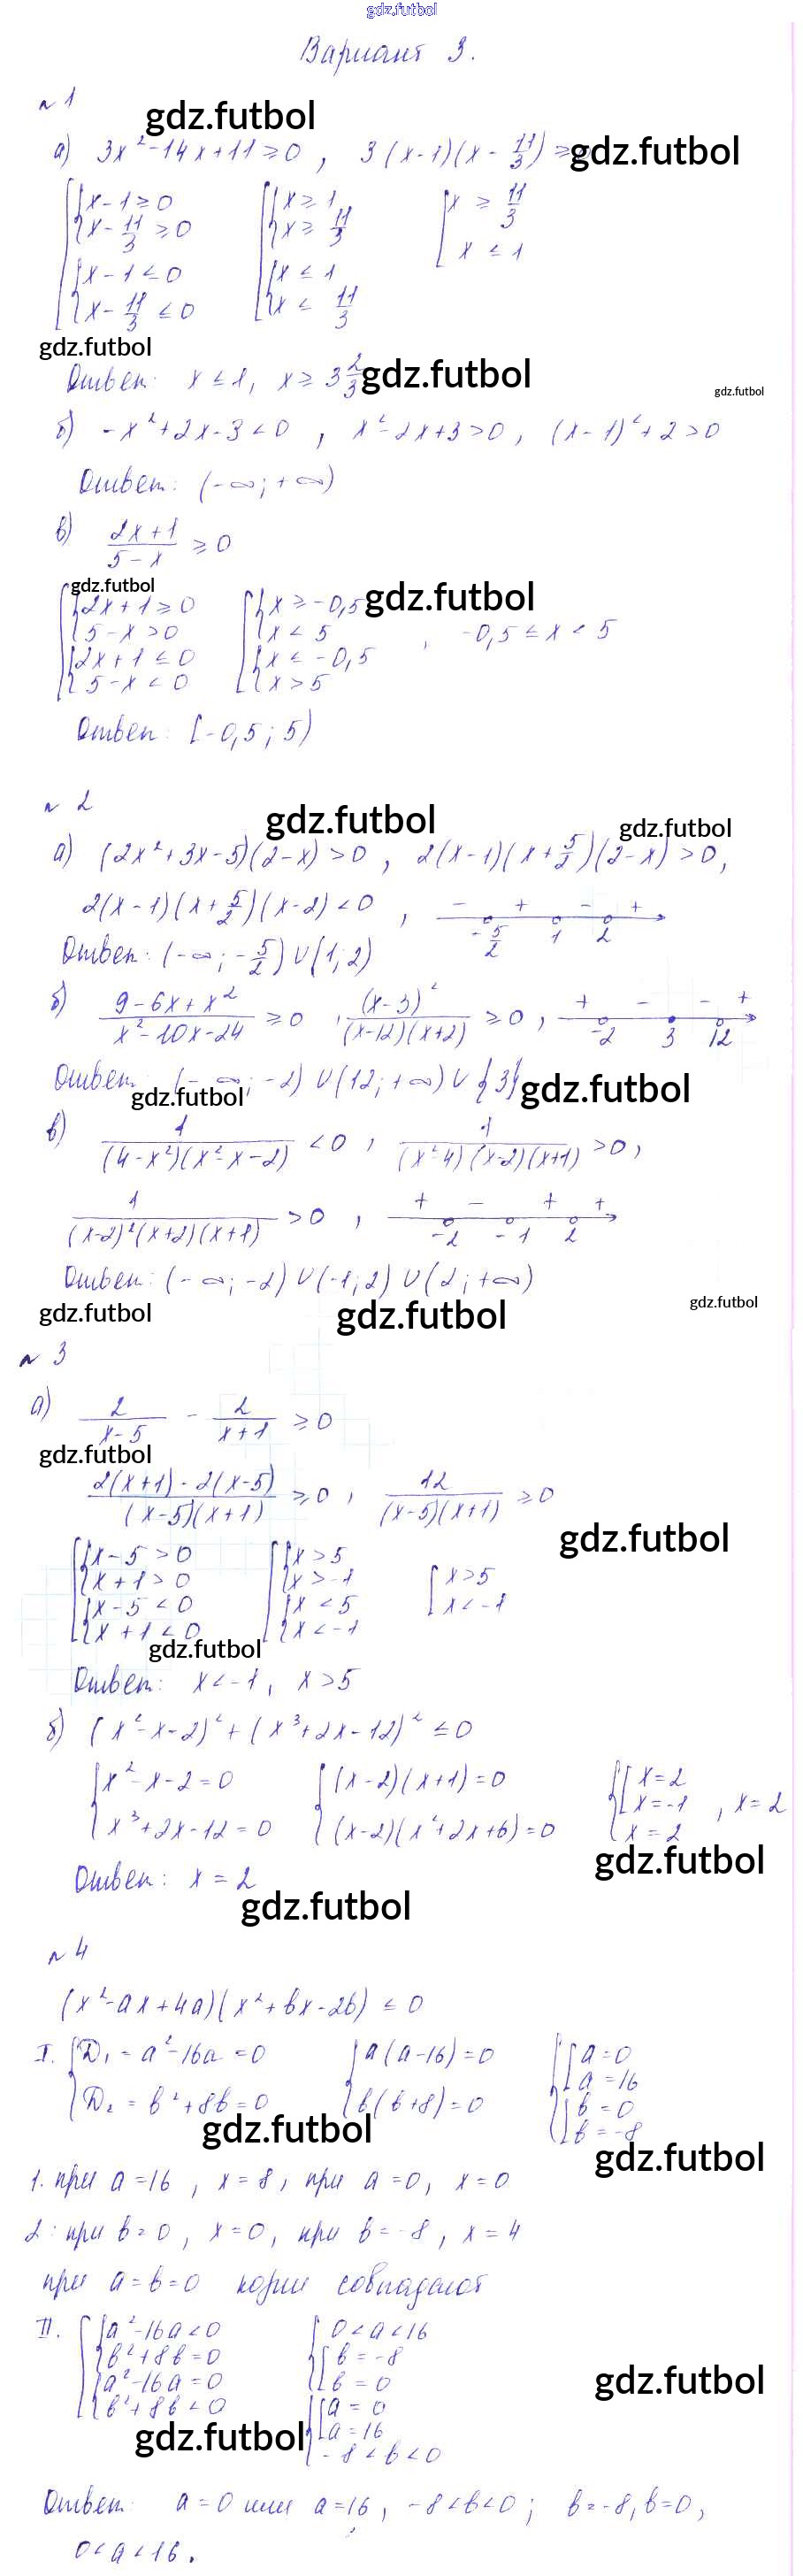 gdz.futbol
Вариант 3.
№ 1
gdz.futbol
а) 3x² - 14x + 11 ≥ 0 , 3(x-1)(x - 11/3) ≥ gdz.futbol
[ { x - 1 ≥ 0 [ { x ≥ 1 [ x ≥ 11/3
{ x - 11/3 ≥ 0 { x ≥ 11/3 x ≤ 1
{ x - 1 ≤ 0 { x ≤ 1
{ x - 11/3 ≤ 0 { x ≤ 11/3
gdz.futbol
Ответ: x ≤ 1, x ≥ 3 2/3 gdz.futbol
gdz.futbol
б) -x² + 2x - 3 < 0 , x² - 2x + 3 > 0 , (x-1)² + 2 > 0
Ответ: (-∞; +∞)
в) (2x+1)/(5-x) ≥ 0
gdz.futbol gdz.futbol
[ { 2x + 1 ≥ 0 [ { x ≥ -0,5
{ 5 - x > 0 { x < 5 , -0,5 ≤ x < 5
{ 2x + 1 ≤ 0 { x ≤ -0,5
{ 5 - x < 0 { x > 5
Ответ: [-0,5; 5)
№ 2
gdz.futbol gdz.futbol
а) (2x² + 3x - 5)(2 - x) > 0 , 2(x-1)(x + 5/2)(2-x) > 0,
2(x-1)(x + 5/2)(x-2) < 0 , - + - + -5/2 1 2
Ответ: (-∞; -5/2) ∪ (1; 2)
б) (9 - 6x + x²)/(x² - 10x - 24) ≥ 0 , (x-3)²/((x-12)(x+2)) ≥ 0 , + - - + -2 3 12
Ответ: (-∞; -2) ∪ (12; +∞) ∪ {3} gdz.futbol
gdz.futbol
в) 1/((4-x²)(x²-x-2)) < 0 , 1/((x²-4)(x-2)(x+1)) > 0 ,
1/((x-2)²(x+2)(x+1)) > 0 , + - + + -2 -1 2
Ответ: (-∞; -2) ∪ (-1; 2) ∪ (2; +∞)
gdz.futbol gdz.futbol gdz.futbol
№ 3
а) 2/(x-5) - 2/(x+1) ≥ 0
gdz.futbol
(2(x+1) - 2(x-5))/((x-5)(x+1)) ≥ 0 , 12/((x-5)(x+1)) ≥ 0
gdz.futbol
[ { x - 5 > 0 [ { x > 5 [ x > 5
{ x + 1 > 0 { x > -1 x < -1
{ x - 5 < 0 { x < 5
{ x + 1 < 0 { x < -1
gdz.futbol
Ответ: x < -1, x > 5
б) (x² - x - 2)² + (x³ + 2x - 12)² ≤ 0
{ x² - x - 2 = 0 { (x-2)(x+1) = 0 { [ x = 2
[ x = -1 , x = 2
x³ + 2x - 12 = 0 (x-2)(x² + 2x + 6) = 0 x = 2
gdz.futbol
Ответ: x = 2
gdz.futbol
№ 4
(x² - ax + 4a)(x² + bx - 2b) ≤ 0
I. { D₁ = a² - 16a = 0 { a(a-16) = 0 { [ a = 0
[ a = 16
D₂ = b² + 8b = 0 b(b+8) = 0 [ b = 0
[ b = -8
gdz.futbol gdz.futbol
1. при a = 16 , x = 8, при a = 0, x = 0
2: при b = 0 , x = 0, при b = -8 , x = 4
при a = b = 0 корни совпадают
II. [ { a² - 16a < 0 { 0 < a < 16
{ b² + 8b = 0 [ b = -8
{ a² - 16a = 0 [ b = 0
{ b² + 8b < 0 { [ a = 0
[ a = 16
-8 < b < 0
gdz.futbol
gdz.futbol
Ответ: a = 0 или a = 16, -8 < b < 0; b = -8, b = 0,
0 < a < 16.